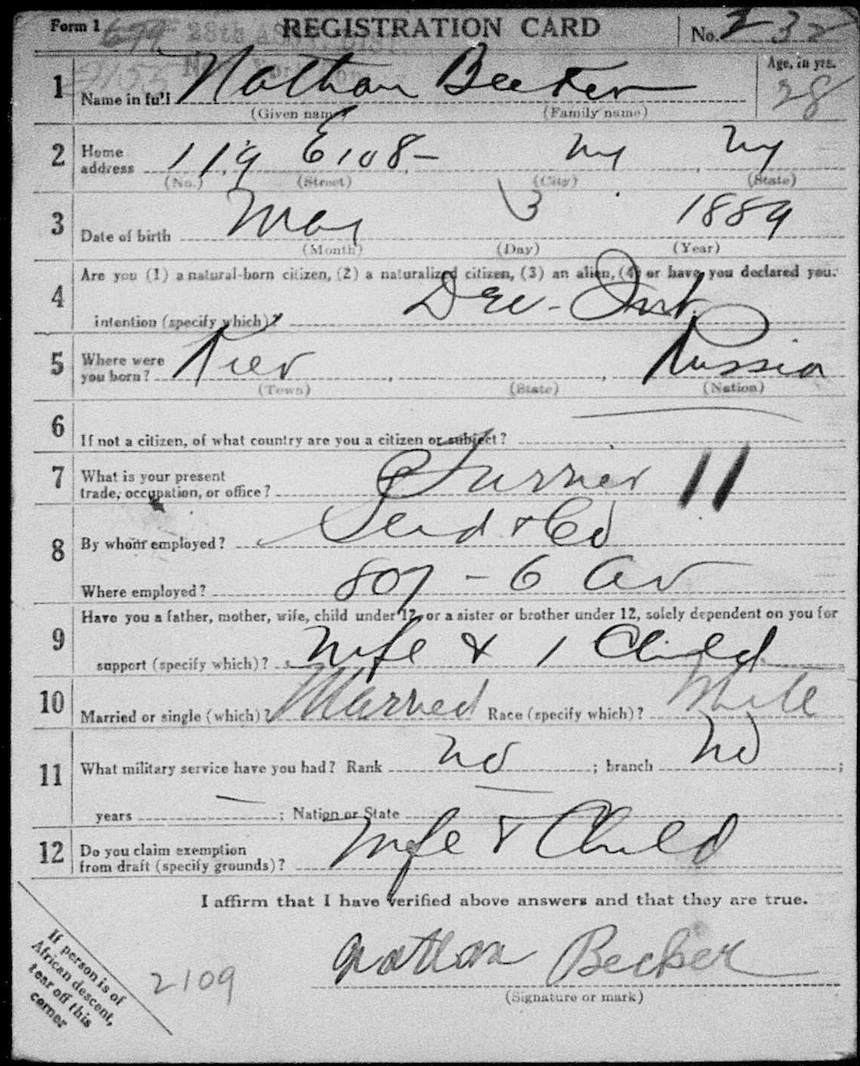 Form 1 REGISTRATION CARD No. 232
1 Name in full Nathan Becker Age, in yrs. 28
(Given name) (Family name)
2 Home address 119 E 108 - NY NY
(No.) (Street) (City) (State)
3 Date of birth May 3 1889
(Month) (Day) (Year)
4 Are you (1) a natural-born citizen, (2) a naturalized citizen, (3) an alien, (4) or have you declared your
intention (specify which)? Dec - Int
5 Where were you born? Kiev Russia
(Town) (State) (Nation)
6 If not a citizen, of what country are you a citizen or subject?
7 What is your present trade, occupation, or office? Furrier 11
8 By whom employed? & Co
Where employed? 807 - 6 Av
9 Have you a father, mother, wife, child under 12, or a sister or brother under 12, solely dependent on you for
support (specify which)? Wife & 1 Child
10 Married or single (which)? Married Race (specify which)? White
11 What military service have you had? Rank no ; branch no ;
years — ; Nation or State —
12 Do you claim exemption from draft (specify grounds)? Wife & Child
I affirm that I have verified above answers and that they are true.
Nathan Becker
(Signature or mark)
If person is of
African descent,
tear off this
corner
2109